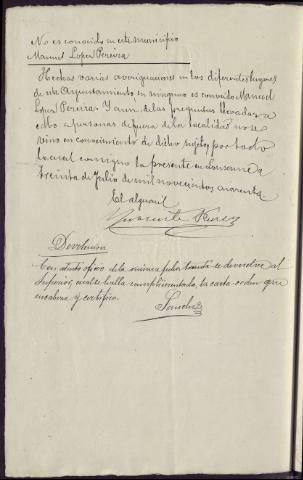 No es conocido en este municipio
Manuel Lopez Pereira
Hechas varias averiguaciones en los diferentes lugares
de este Ayuntamiento en ninguno es conocido Manuel
Lopez Pereira. Y aun de las preguntas llevadas a
cabo a personas de fuera de la localidad no se
vino en conocimiento de dicho sujeto, por todo
lo cual consigno la presente en a
treinta de Julio de mil novecientos cuarenta
El alguacil
Perez
Devolución
Con atento oficio de la misma fecha se devuelve al
Superior, cumplimentada, la carta-orden que
encabeza y certifico.
Sanchez